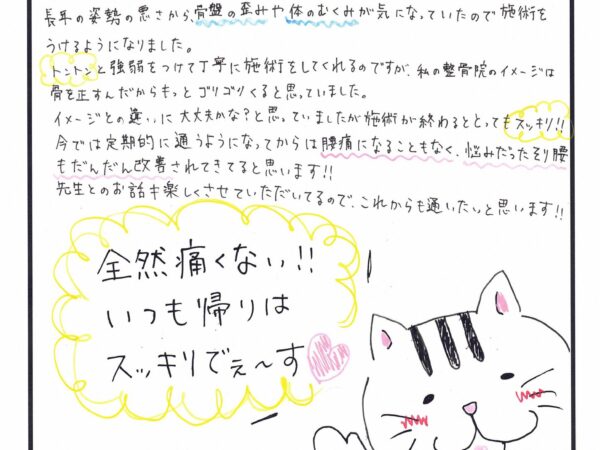 長年の姿勢の悪さから、骨盤の歪みや体のむくみが気になっていたので施術を
うけるようになりました。
トントンと強弱をつけて丁寧に施術をしてくれるのですが、私の整骨院のイメージは
骨を正すんだからもっとゴリゴリくると思っていました。
イメージとの違いに大丈夫かな?と思っていましたが施術が終わるととってもスッキリ!!
今では定期的に通うようになってからは腰痛になることもなく、悩みだったそり腰
もだんだん改善されてきてると思います!!
先生とのお話も楽しくさせていただいてるので、これからも通いたいと思います!!
全然痛くない!!
いつも帰りは
スッキリでぇ〜す